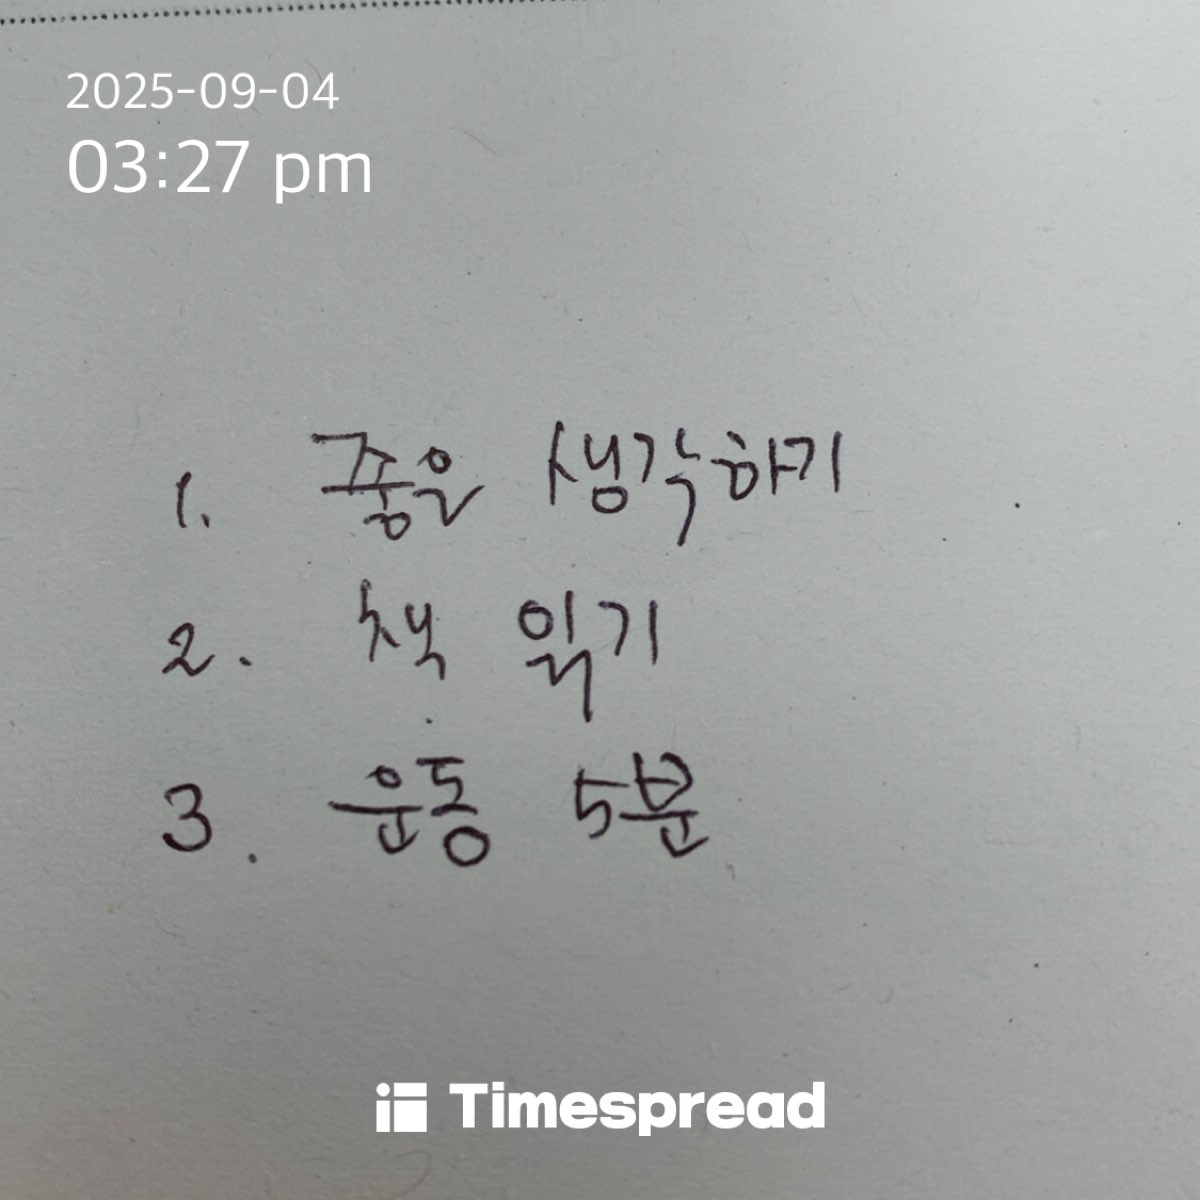 2025-09-04
03:27 pm
1. 좋은 생각하기
2. 책 읽기
3. 운동 5분
Timespread